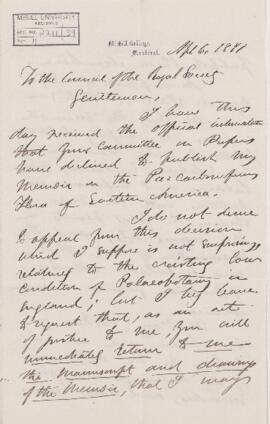 McGILL UNIVERSITY
RECEIVED
ACC. NO. 2211/39
REF.
McGill College,
Montreal.
Apl 6, 1871
To the Council of the Royal Society
Gentlemen,
I have this
day received the official intimation
that your Committee on Papers
have declined to publish my
Memoir on the Pre-carboniferous
Flora of Eastern America.
I do not desire
to appeal from this decision,
which I suppose is not surprising
relatively to the existing low
condition of Palaeobotany in
England; but I beg leave
to request that, as an act
of justice to me, you will
immediately return to me
the Manuscript and drawings
of the Memoir, that I may